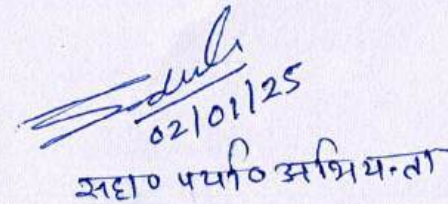 02/01/25
सहा० पर्या० अभियन्ता